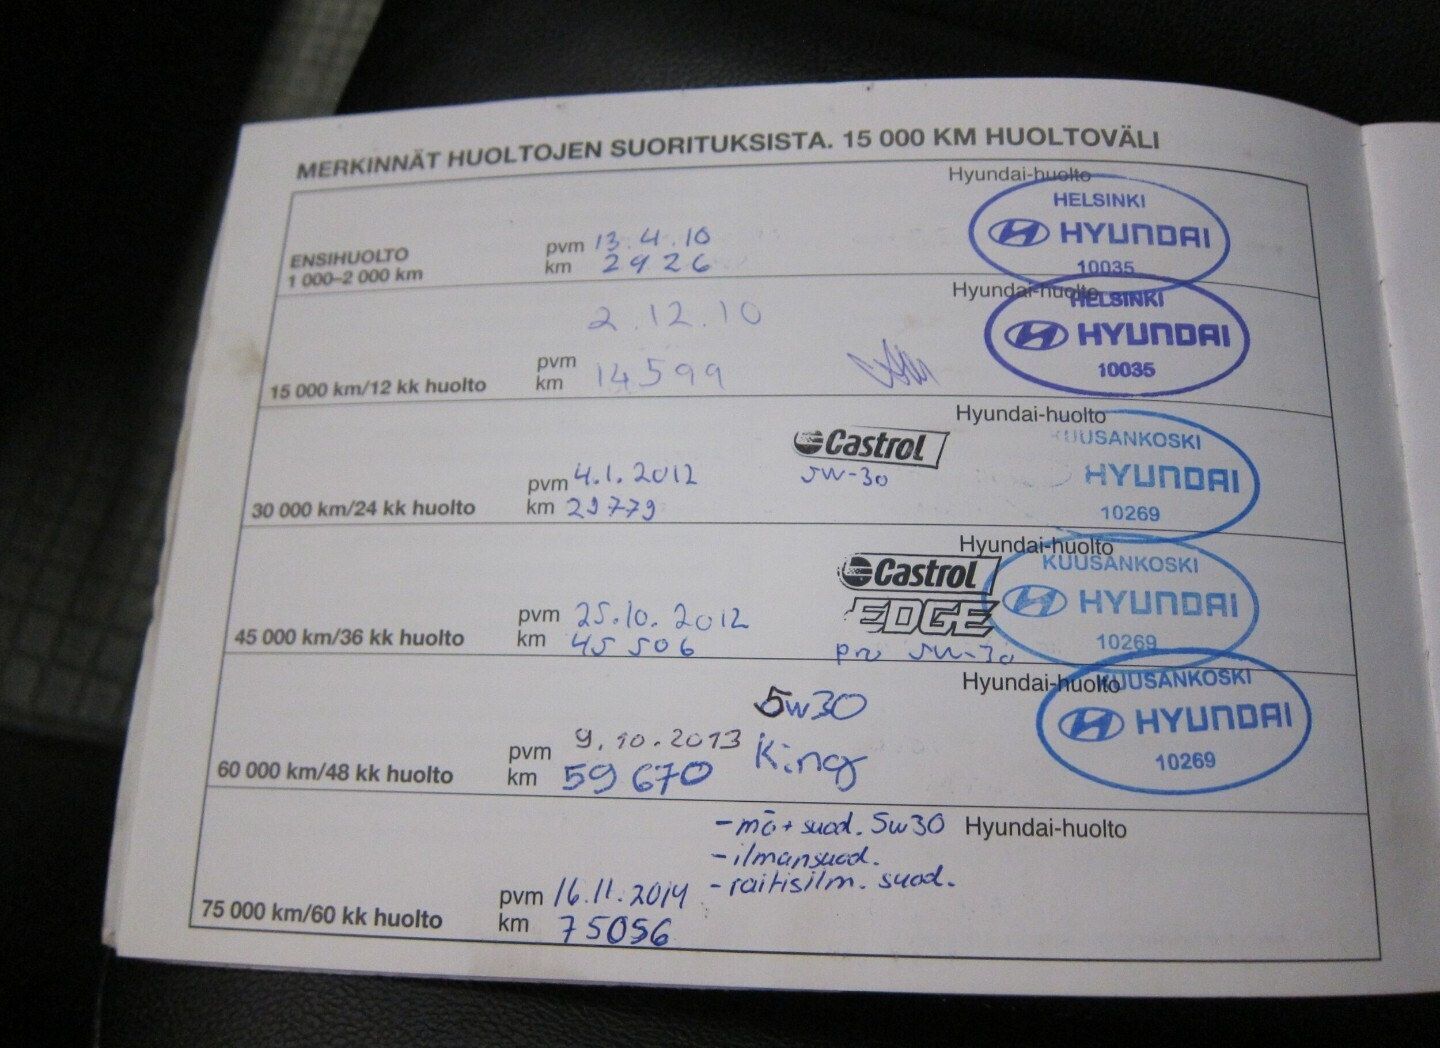 MERKINNÄT HUOLTOJEN SUORITUKSISTA. 15 000 KM HUOLTOVÄLI
Hyundai-huolto
HELSINKI
HYUNDAI
10035
ENSIHUOLTO
1 000–2 000 km
pvm 13.4.10
km 2926
Hyundai-huolto
HELSINKI
HYUNDAI
10035
2.12.10
15 000 km/12 kk huolto
pvm
km 14599
Hyundai-huolto
KUUSANKOSKI
HYUNDAI
10269
Castrol
5W-30
30 000 km/24 kk huolto
pvm 4.1.2012
km 29779
Hyundai-huolto
KUUSANKOSKI
HYUNDAI
10269
Castrol
EDGE
pro 5W-30
45 000 km/36 kk huolto
pvm 25.10.2012
km 45506
Hyundai-huolto
KUUSANKOSKI
HYUNDAI
10269
5w30
King
60 000 km/48 kk huolto
pvm 9.10.2013
km 59670
Hyundai-huolto
-mö+suod. 5w30
-ilmansuod.
-raitisilm. suod.
75 000 km/60 kk huolto
pvm 16.11.2014
km 75056